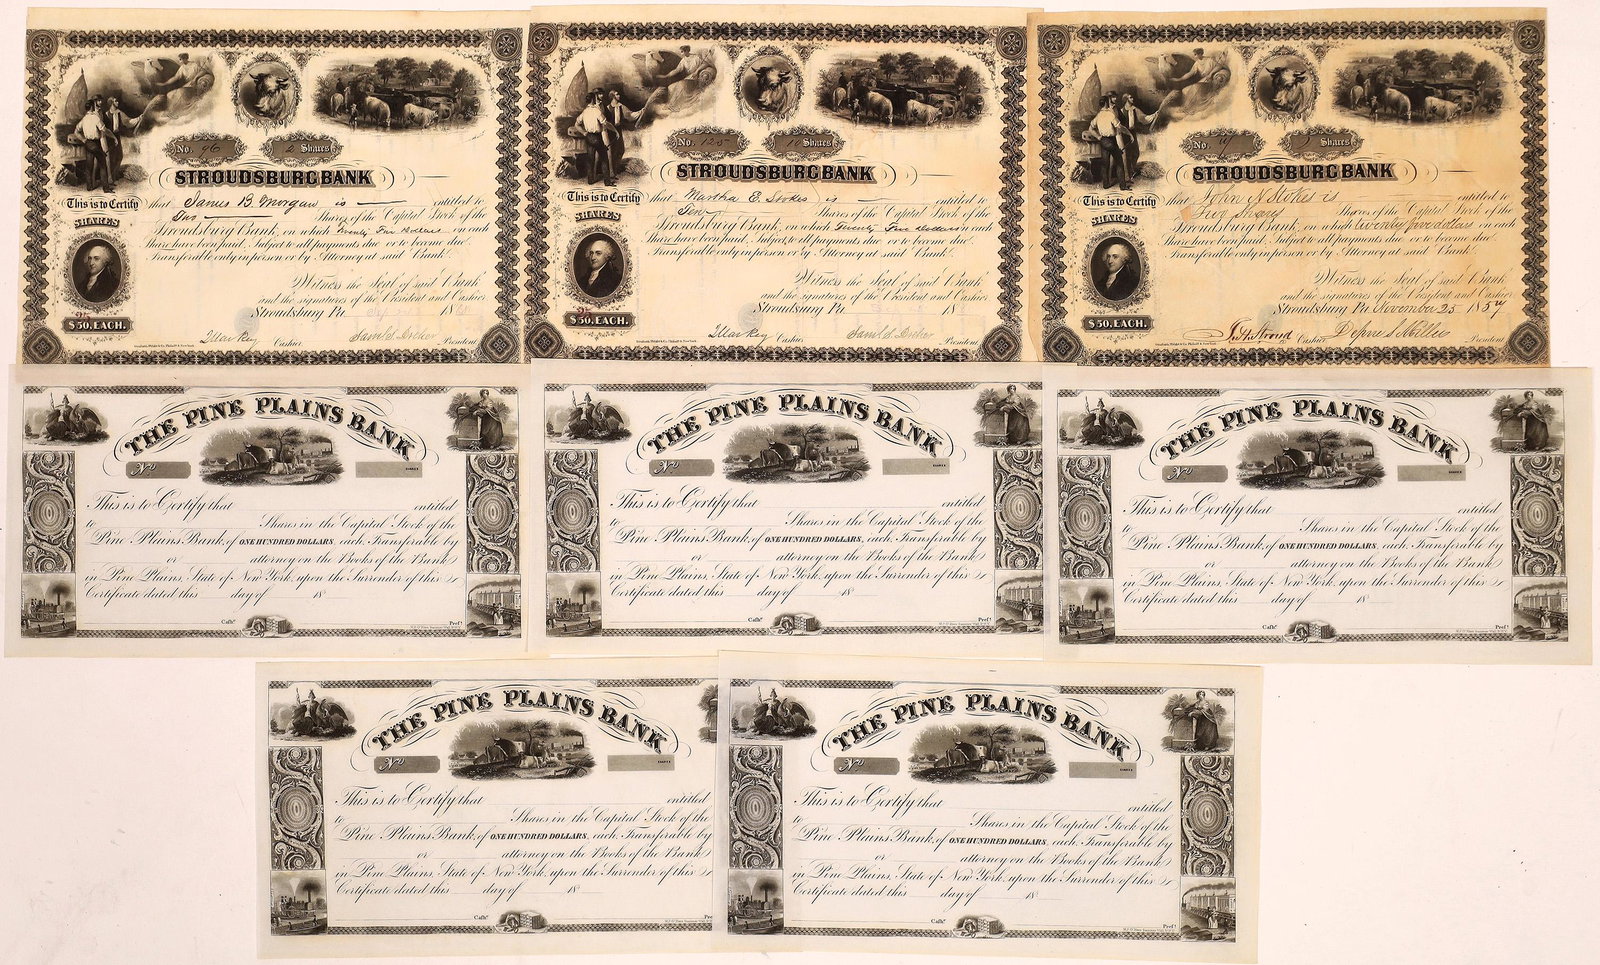 No. 96
2 Shares
STROUDSBURG BANK
This is to Certify that James B. Morgan is entitled to
Two Shares of the Capital Stock of the
SHARES
Stroudsburg Bank, on which Twenty Five dollars on each
Share have been paid, Subject to all payments due or to become due.
Transferable only in person or by Attorney at said Bank.
Witness the Seal of said Bank
and the signatures of the President and Cashier
25
Stroudsburg Pa. 18
$50. EACH.
Cashier
President
No. 125
10 Shares
STROUDSBURG BANK
This is to Certify that Martha E. Stokes is entitled to
Ten Shares of the Capital Stock of the
SHARES
Stroudsburg Bank, on which Twenty Five dollars on each
Share have been paid, Subject to all payments due or to become due.
Transferable only in person or by Attorney at said Bank.
Witness the Seal of said Bank
and the signatures of the President and Cashier
25
Stroudsburg Pa. 18
$50. EACH.
Cashier
President
No.
5 Shares
STROUDSBURG BANK
This is to Certify that John N Stokes is entitled to
Five Shares Shares of the Capital Stock of the
SHARES
Stroudsburg Bank, on which twenty five dollars on each
Share have been paid, Subject to all payments due or to become due.
Transferable only in person or by Attorney at said Bank.
Witness the Seal of said Bank
and the signatures of the President and Cashier
Stroudsburg Pa. November 25 1857
$50. EACH.
Stroud Cashier President
THE PINE PLAINS BANK
No
SHARES
This is to Certify that entitled
to Shares in the Capital Stock of the
Pine Plains Bank, of ONE HUNDRED DOLLARS, each, Transferable by
or attorney on the Books of the Bank
in Pine Plains, State of New York, upon the Surrender of this
Certificate dated this day of 18
Cashr. Prest.
THE PINE PLAINS BANK
No
SHARES
This is to Certify that entitled
to Shares in the Capital Stock of the
Pine Plains Bank, of ONE HUNDRED DOLLARS, each, Transferable by
or attorney on the Books of the Bank
in Pine Plains, State of New York, upon the Surrender of this
Certificate dated this day of 18
Cashr. Prest.
THE PINE PLAINS BANK
No
SHARES
This is to Certify that entitled
to Shares in the Capital Stock of the
Pine Plains Bank, of ONE HUNDRED DOLLARS, each, Transferable by
or attorney on the Books of the Bank
in Pine Plains, State of New York, upon the Surrender of this
Certificate dated this day of 18
Cashr. Prest.
THE PINE PLAINS BANK
No
SHARES
This is to Certify that entitled
to Shares in the Capital Stock of the
Pine Plains Bank, of ONE HUNDRED DOLLARS, each, Transferable by
or attorney on the Books of the Bank
in Pine Plains, State of New York, upon the Surrender of this
Certificate dated this day of 18
Cashr.
THE PINE PLAINS BANK
No
SHARES
This is to Certify that entitled
to Shares in the Capital Stock of the
Pine Plains Bank, of ONE HUNDRED DOLLARS, each, Transferable by
or attorney on the Books of the Bank
in Pine Plains, State of New York, upon the Surrender of this
Certificate dated this day of 18
Cashr. Prest.